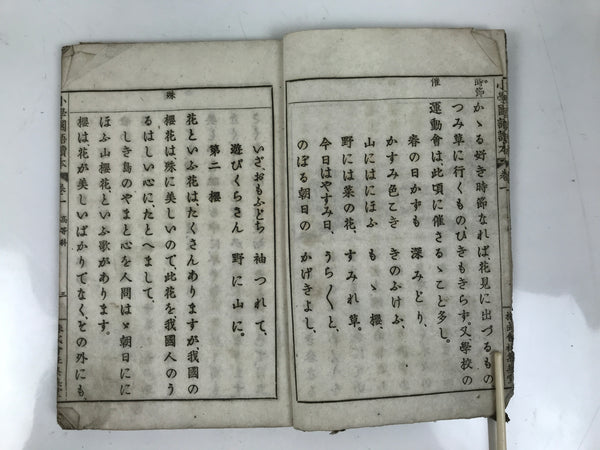 時節
催
かゝる好き時節なれば、花見に出づるもの
つみ草に行くものひきもきらず。又學校の
運動會は、此頃に催さるゝこと多し。
春の日かずも 深みどり、
かすみ色こき きのふけふ、
山にはにほふ もゝ櫻、
野には菜の花、 すみれ草。
今日はやすみ日、 うらくと、
のぼる朝日の かげきよし、
殊
いざおもふどち 袖つれて、
遊びくらさん 野に山に。
第二 櫻
花といふ花はたくさんありますが、我國の
櫻花は殊に美しいので、此花を我國人のう
るはしい心にたとへまして、
しき島のやまと心を人問はゞ朝日にに
ほふ山櫻花といふ歌があります。
櫻は、花が美しいばかりでなく、その外にも、
小學國語讀本 卷一 高等科 三